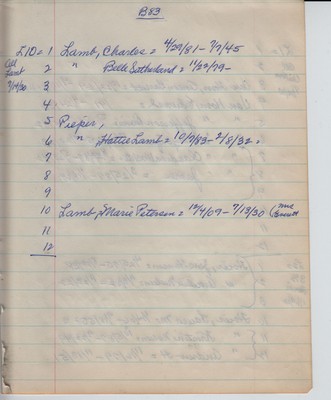 B83
L10 = 1 Lamb, Charles = 4/29/81 - 7/7/45
Cal Lamb 7/14/30
2 " Belle Sutherland = 11/22/79 -
3
4
5 Pieper,
6 " Hattie Lamb = 10/9/83 - 2/8/32 =
7
8
9
10 Lamb, Marie Petersen = 12/4/09 - 7/13/30 (Mrs Everett
11
12